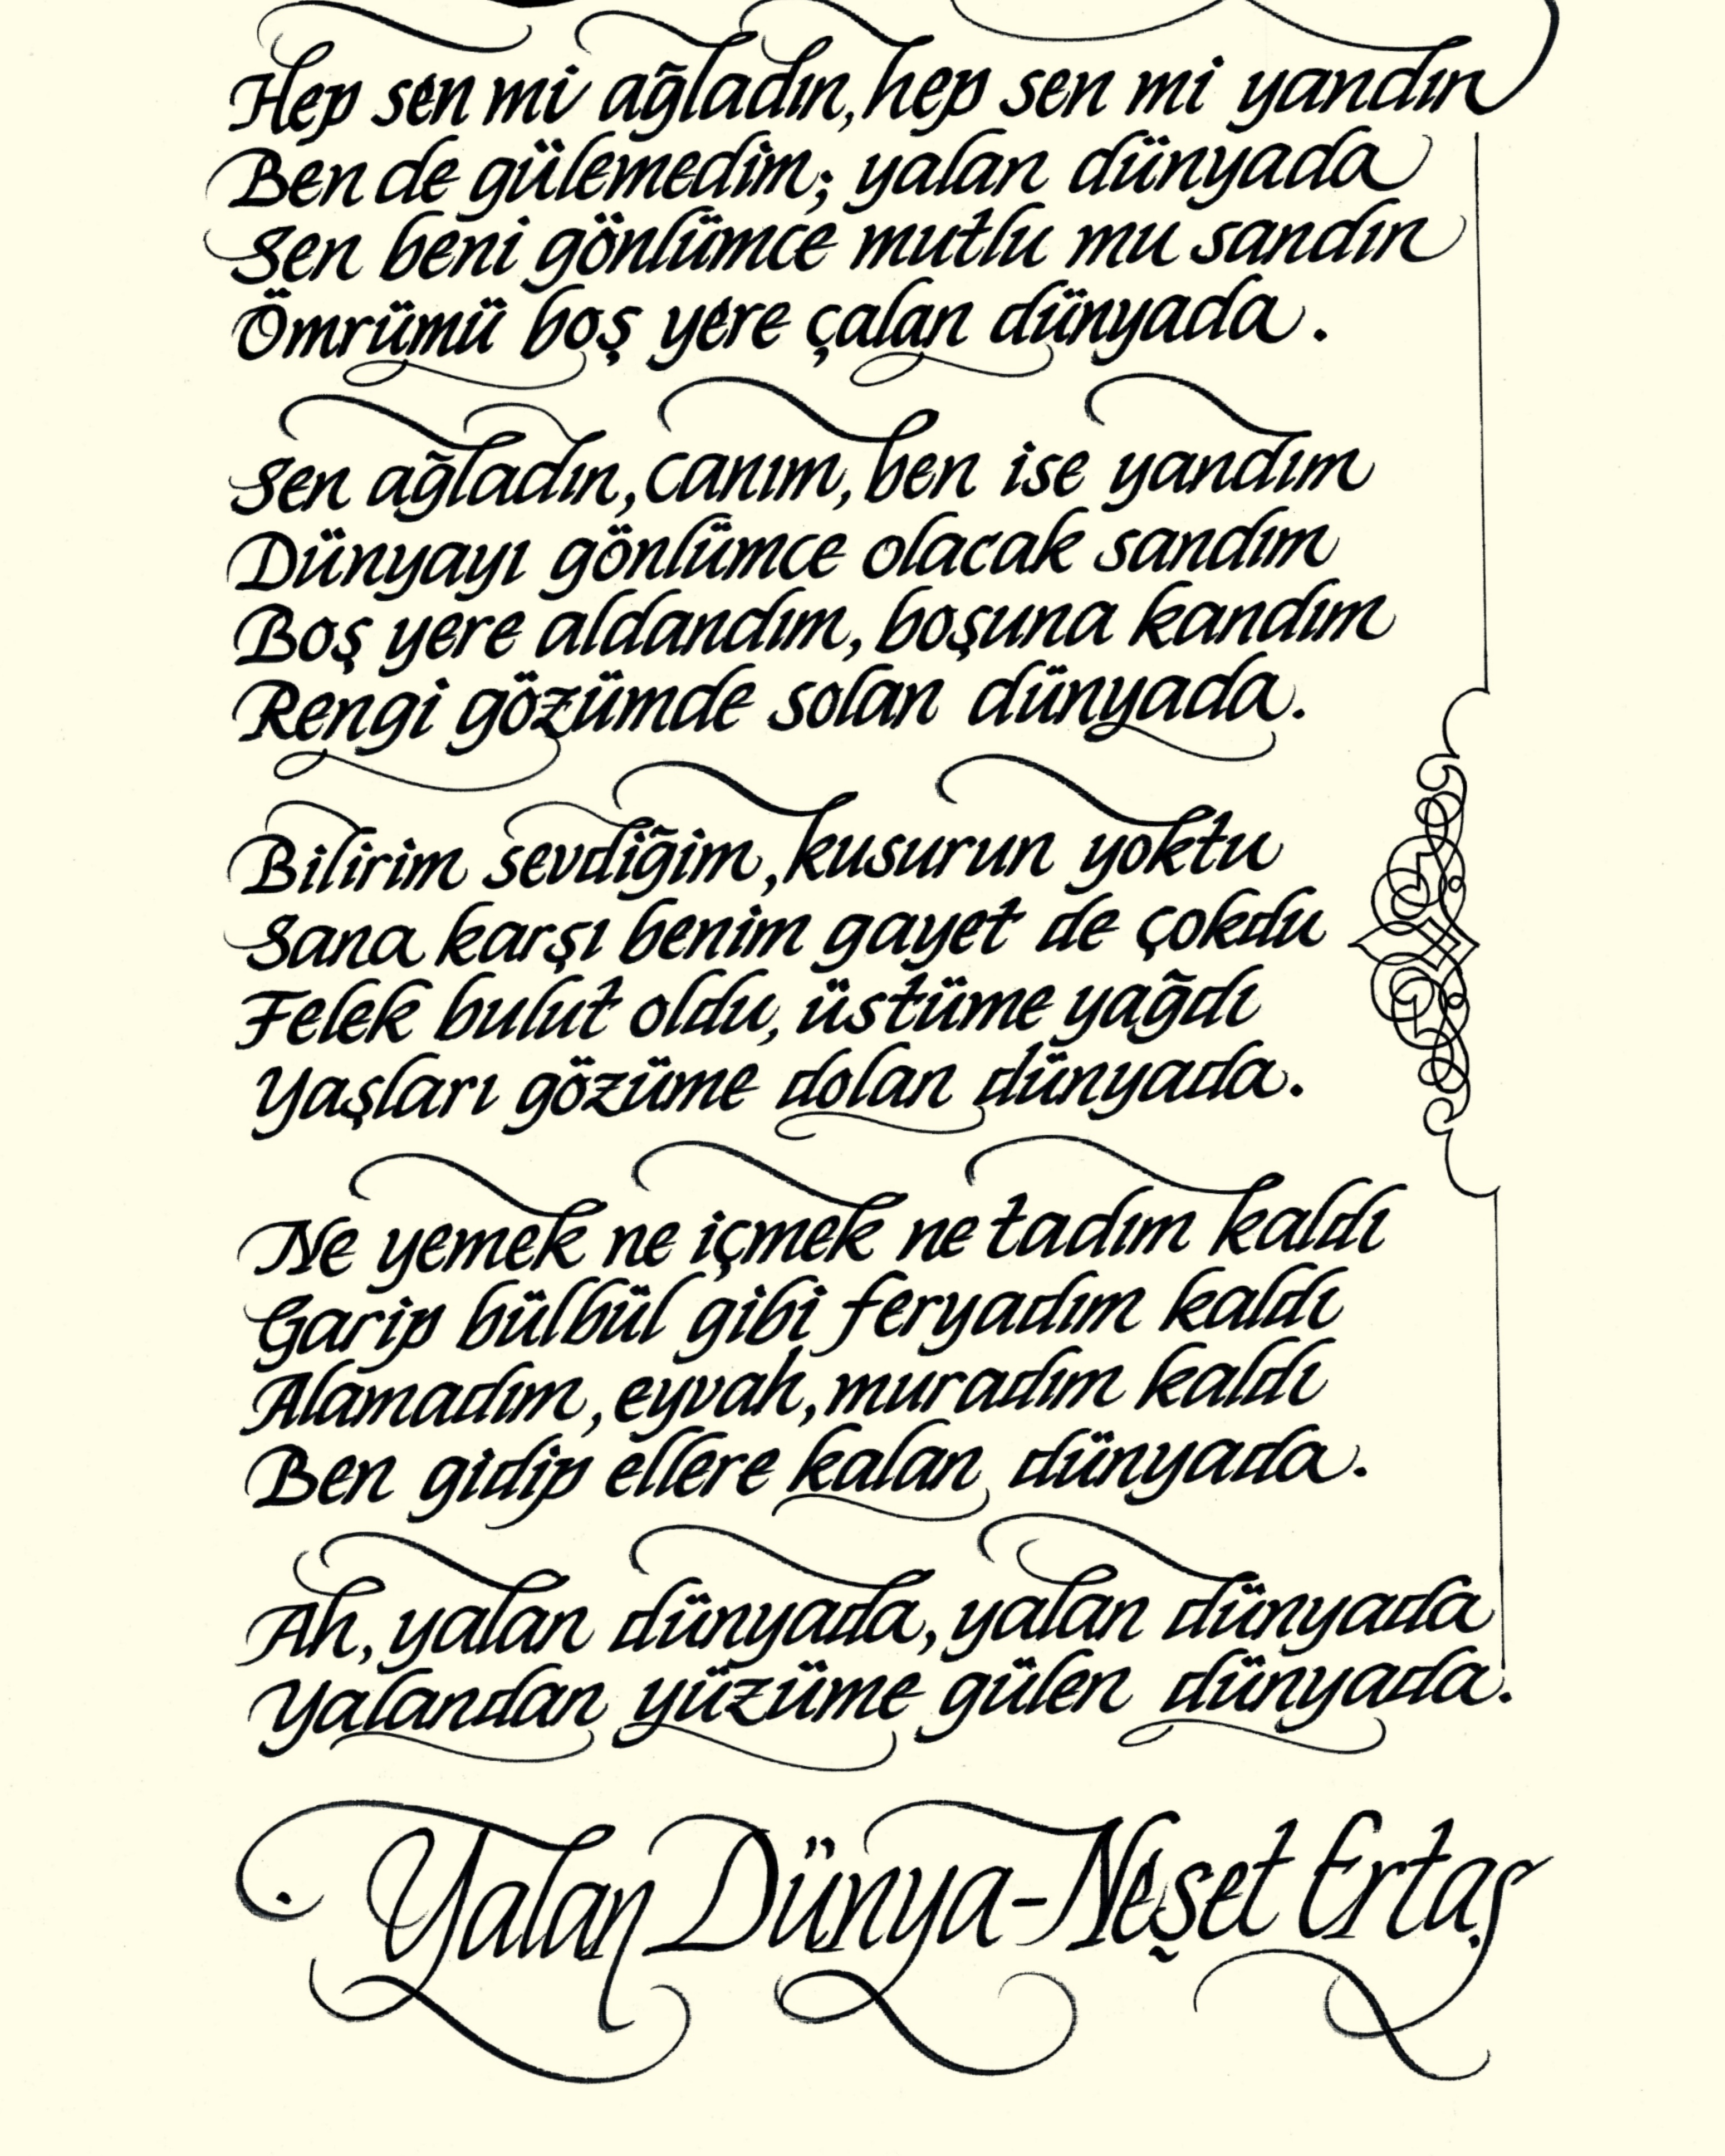 Hep sen mi ağladın, hep sen mi yandın
Ben de gülemedim; yalan dünyada
Sen beni gönlümce mutlu mu sandın
Ömrümü boş yere çalan dünyada.
Sen ağladın, canım, ben ise yandım
Dünyayı gönlümce olacak sandım
Boş yere aldandım, boşuna kandım
Rengi gözümde solan dünyada.
Bilirim sevdiğim, kusurun yoktu
Sana karşı benim gayet de çokdu
Felek bulut oldu, üstüme yağdı
Yaşları gözüme dolan dünyada.
Ne yemek ne içmek ne tadım kaldı
Garip bülbül gibi feryadım kaldı
Alamadım, eyvah, muradım kaldı
Ben gidip ellere kalan dünyada.
Ah, yalan dünyada, yalan dünyada
Yalandan yüzüme gülen dünyada.
Yalan Dünya-Neşet Ertaş